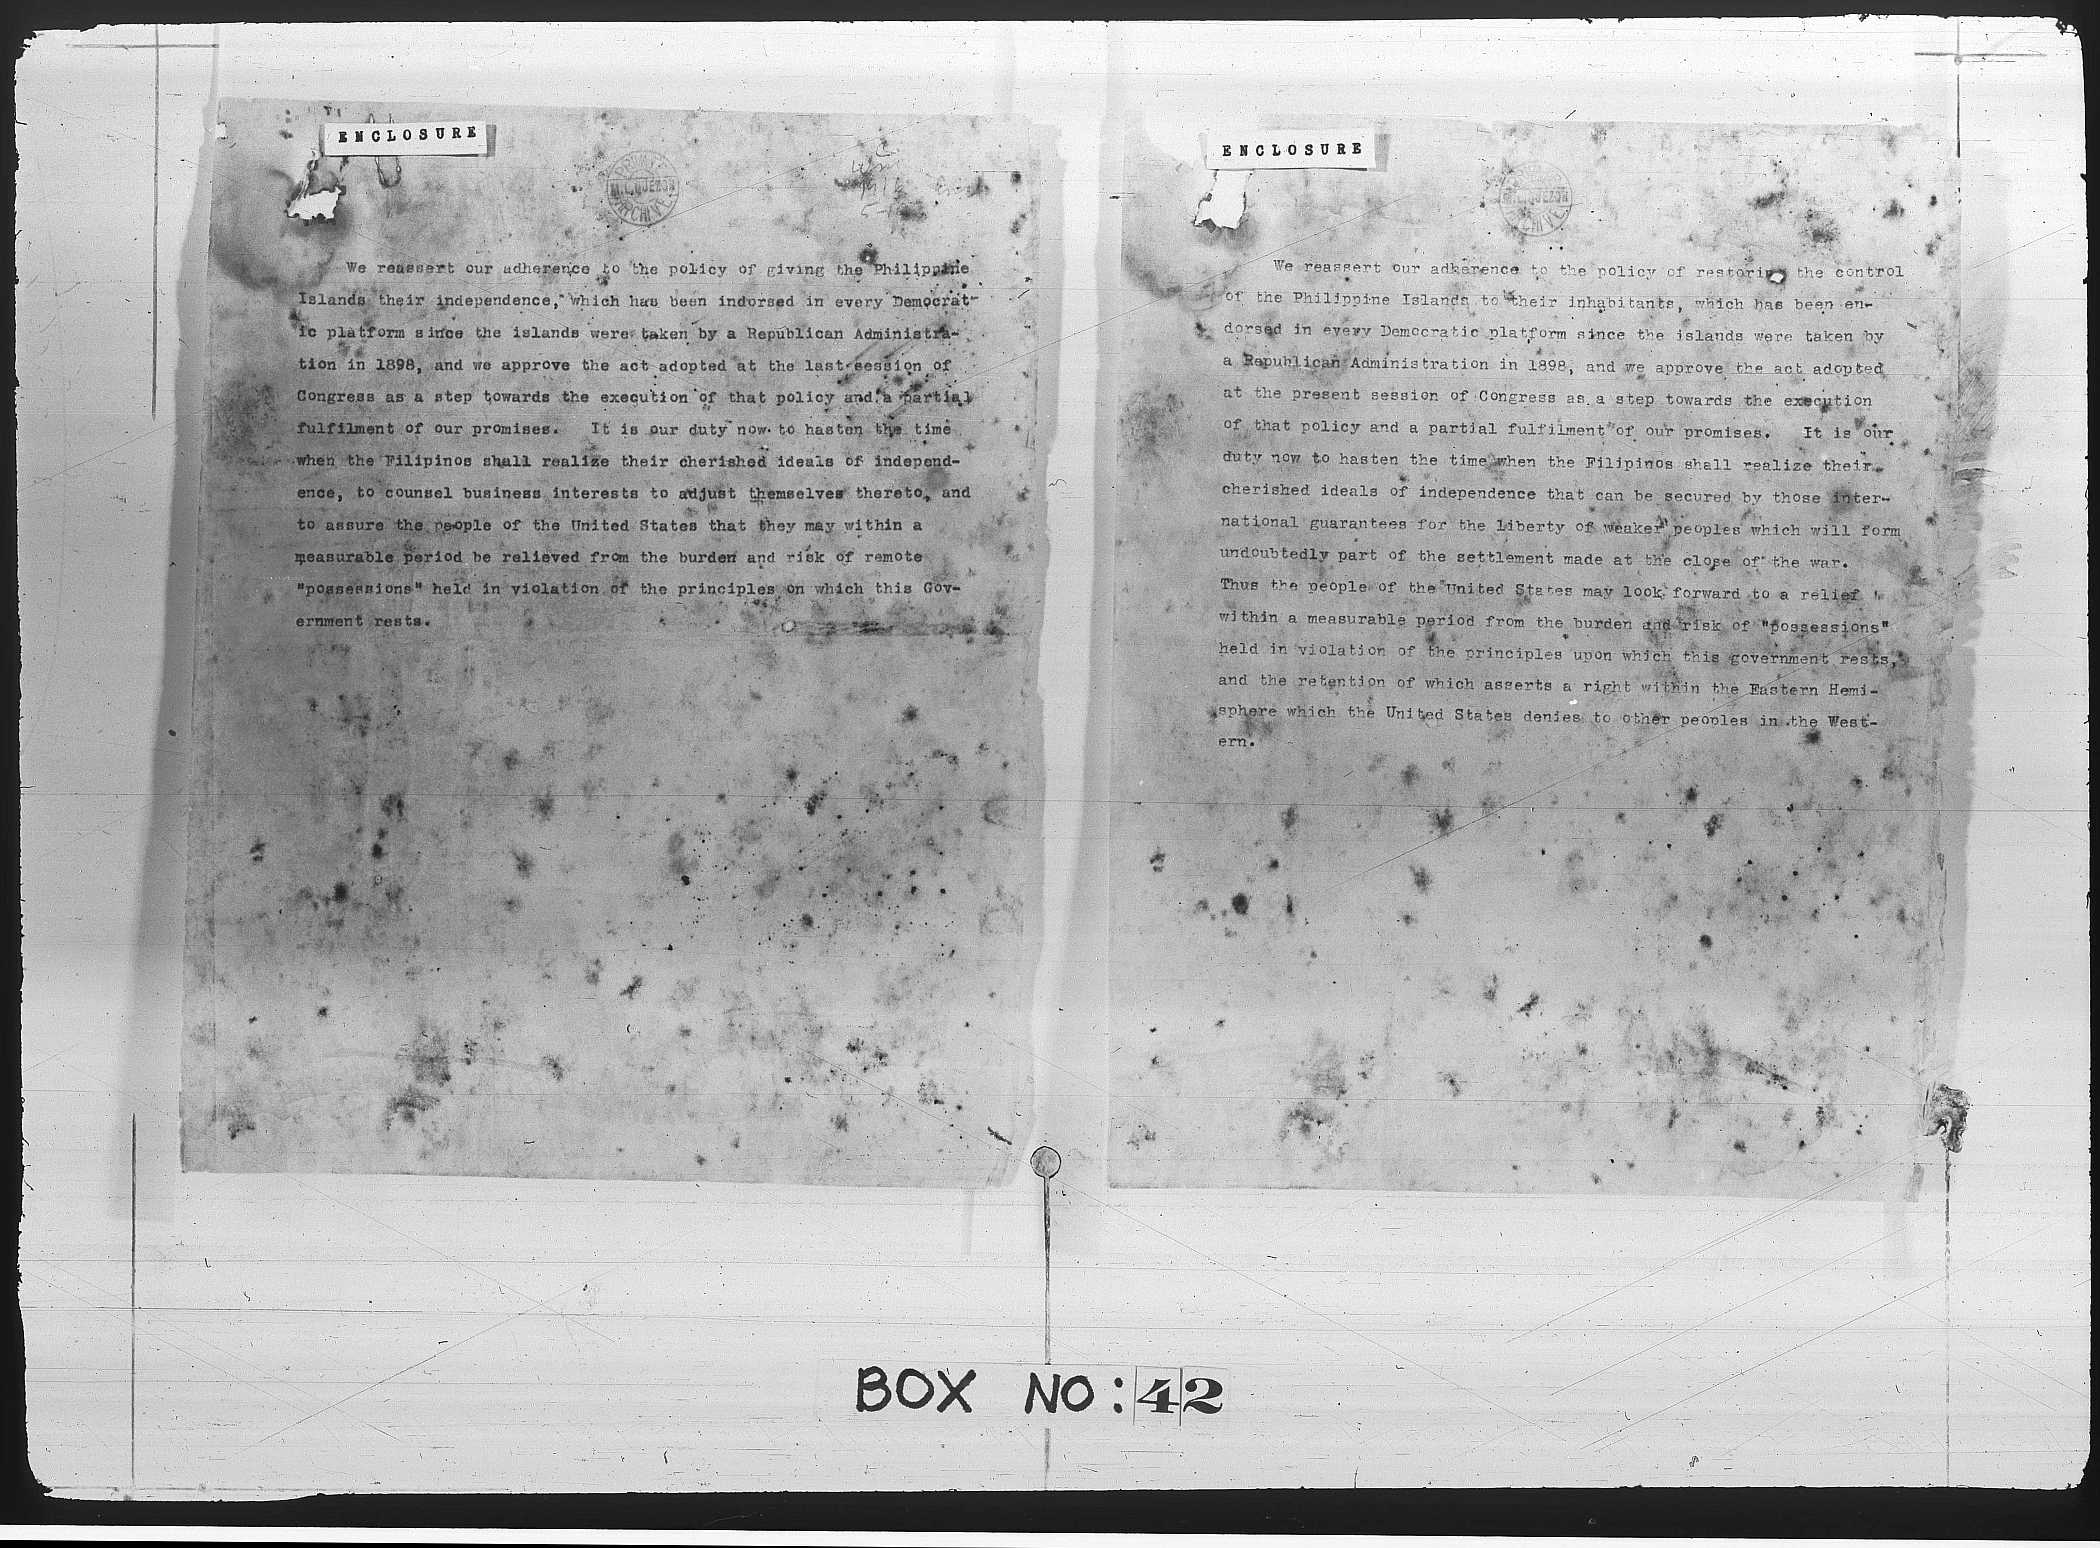 ENCLOSURE
PRIVATE
M.L.QUEZON
ARCHIVE
We reassert our adherence to the policy of giving the Philippine
Islands their independence, which has been indorsed in every Democrat-
ic platform since the islands were taken by a Republican Administra-
tion in 1898, and we approve the act adopted at the last session of
Congress as a step towards the execution of that policy and a partial
fulfilment of our promises. It is our duty now to hasten the time
when the Filipinos shall realize their cherished ideals of independ-
ence, to counsel business interests to adjust themselves thereto, and
to assure the people of the United States that they may within a
measurable period be relieved from the burden and risk of remote
"possessions" held in violation of the principles on which this Gov-
ernment rests.
ENCLOSURE
M.L.QUEZON
We reassert our adherence to the policy of restoring the control
of the Philippine Islands to their inhabitants, which has been en-
dorsed in every Democratic platform since the islands were taken by
a Republican Administration in 1898, and we approve the act adopted
at the present session of Congress as a step towards the execution
of that policy and a partial fulfilment of our promises. It is our
duty now to hasten the time when the Filipinos shall realize their
cherished ideals of independence that can be secured by those inter-
national guarantees for the liberty of weaker peoples which will form
undoubtedly part of the settlement made at the close of the war.
Thus the people of the United States may look forward to a relief
within a measurable period from the burden and risk of "possessions"
held in violation of the principles upon which this government rests,
and the retention of which asserts a right within the Eastern Hemi-
sphere which the United States denies to other peoples in the West-
ern.
BOX NO: 42